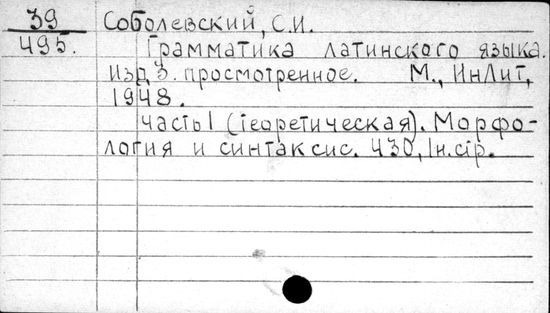 39
495.
Соболевский, С.И.
Грамматика латинского языка.
Изд 3. просмотренное. М., ИнЛит,
1948.
часть I (теоретическая). Морфо-
логия и синтаксис. 430, 1н.стр.